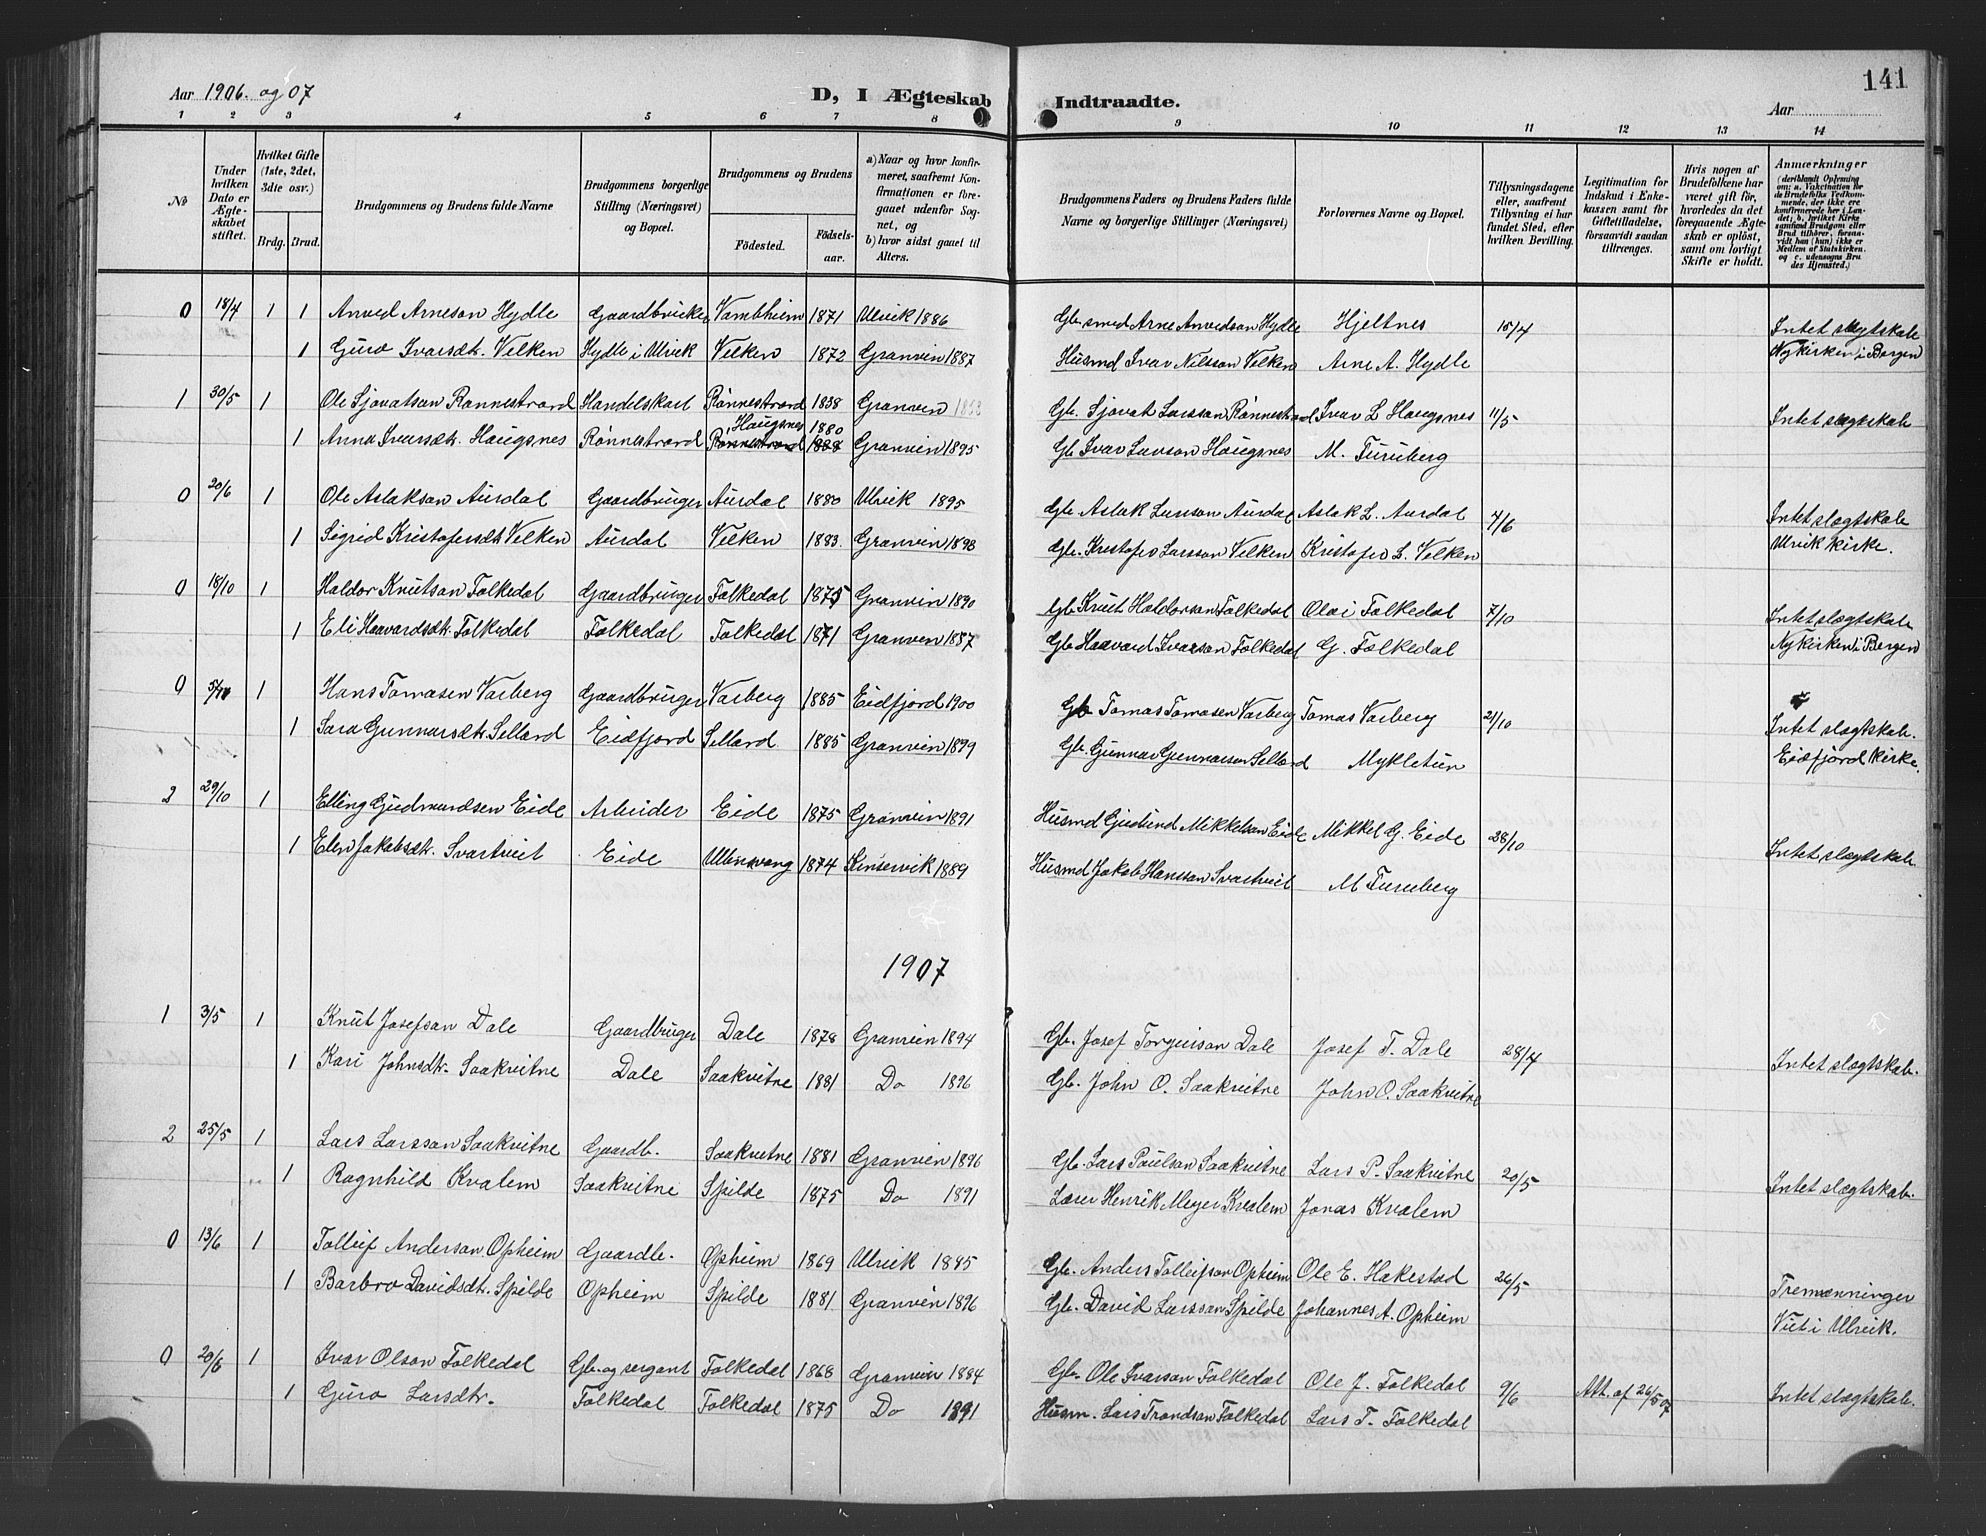 Aar 1906. og 07
D, I Ægteskab Indtraadte.
Aar
141
1 2 3 4 5 6 7 8 9 10 11 12 13 14
No
Under hvilken Dato er Ægteskabet stiftet.
Hvilket Gifte (1ste, 2det, 3die osv.)
Brdg. Brud.
Brudgommens og Brudens fulde Navne
Brudgommens borgerlige Stilling (Næringsvei) og Bopæl.
Brudgommens og Brudens
Fødested.
Fødselsaar.
a) Naar og hvor konfirmeret, saafremt Konfirmationen er foregaaet udenfor Sognet, og
b) hvor sidst gaaet til Alters.
Brudgommens Faders og Brudens Faders fulde Navne og borgerlige Stillinger (Næringsvei)
Forlovernes Navne og Bopæl.
Tillysningsdagene eller, saafremt Tillysning ei har fundet Sted, efter hvilken Bevilling.
Legitimation for Indskud i Enkekassen samt for Giftetilladelse, forsaavidt saadan tiltrænges.
Hvis nogen af Brudefolkene har været gift før, hvorledes da det foregaaende Ægteskab er opløst, samt om lovligt Skifte er holdt.
Anmærkninger (deriblandt Oplysning om: a. Vakcination for de Brudefolks Vedkommende, der ikke ere konfirmerede her i Landet; b. hvilket Kirkesamfund Brudgom eller Brud tilhører, forsaavidt han (hun) ikke er Medlem af Statskirken. og c. udensogns Brudes Hjemsted.)
0 18/4 1 1 Anved Arneson Hydle Gaardbruker Vambheim 1871 Ulvik 1886 Gb. smed Arne Anvedson Hydle Hjeltnes 15/4 Intet slægtskab
1 Guro Ivarsdt. Velken Hydle i Ulvik Velken 1872 Granvin 1887 Husmd Ivar Nilsson Velken Arne A. Hydle Nykirken i Bergen
1 30/5 1 Ole Sjovatson Rønnestrand Handelskarl Rønnestrand 1838 Granvin 1853 Gb. Sjovat Larsson Rønnestrand Ivar L Haugsnes 11/5 Intet slægtskab
Haugsnes 1880
1 Anna Iversdt. Haugsnes Rønnestrand Rønnestrand 1888 Granvin 1895 Gb Ivar Larsson Haugsnes M. Furuberg
0 20/6 1 Ole Aslakson Aurdal Gaardbruger Aurdal 1880 Ulvik 1895 Gb Aslak Larsson Aurdal Aslak L. Aurdal 4/6 Intet slægtskab
1 Sigrid Kristofersdt Velken Aurdal Velken 1883. Granvin 1898 Gb. Kristofer Larsson Velken Kristofer L. Velken Ulvik kirke.
0 18/10 1 Haldor Knutson Folkedal Gaardbruger Folkedal 1875 Granvin 1890 Gb Knut Haldorson Folkedal Olai Folkedal 7/10 Intet slægtskab
1 Eli Haavardsdt. Folkedal Folkedal Folkedal 1871 Granven 1887 Gb Haavard Ivarson Folkedal G. Folkedal Nykirken i Bergen
0 5/11 1 Hans Tomasen Varberg Gaardbruger Varberg 1885 Eidfjord 1900 Gb Tomas Tomasen Varberg Tomas Varberg 21/10 Intet slægtskab.
1 Sara Gunnarsdt. Sellard Eidfjord Sellard 1885 Granvin 1899 Gb. Gunnar Gunnarsen Sellard Mykletun Eidfjord kirke.
2 29/10 1 Elling Gudmundsen Eide Arbeider Eide 1875 Granvin 1891 Husmd Mikkelson Eide Mikkel G. Eide 28/10 Intet slægtskab
1 Elen Jakobsdt. Svartveit Eide Ullensvang 1874 Kinservik 1889 Husmd Jakob Hansson Svartveit M Furuberg
1907
1 3/5 1 Knut Josefson Dale Gaardbruger Dale 1878 Granvin 1894 Gb. Josef Torgeirson Dale Josef T. Dale 28/4 Intet slægtskab.
1 Kari Johnsdt. Saakvitne Dale Saakvitne 1881 Do 1896 Gb. John O. Saakvitne John O. Saakvitne
2 25/5 1 Lars Larsson Saakvitne Gaardb. Saakvitne 1881 Granvin 1896 Gb. Lars Paulson Saakvitne Lars P. Saakvitne 20/5 Intet slægtskab.
1 Ragnhild Kvalem Saakvitne Spilde 1875 Do 1891 Lærer Henrik Meyer Kvalem Jonas Kvalem
0 13/6 1 Tolleif Anderson Opheim Gaardb. Opheim 1869 Ulvik 1885 Gb. Anders Tolleifson Opheim Ole E. Hakestad 26/5 Tremænninger
1 Barbro Davidsdt. Spilde Opheim Spilde 1881 Granvin 1896 Gb. David Larsson Spilde Johannes A. Opheim Viet i Ulvik.
0 20/6 1 Ivar Olson Folkedal Gb. og sergant Folkedal 1868 Granvin 1884 Gb. Ole Ivarson Folkedal Ole J. Folkedal 9/6 Att. af 26/5 07 Intet slægtskab.
1 Guro Larsdtr. Folkedal Folkedal 1875 Do 1891 Husm. Lars Trondson Folkedal Lars T. Folkedal